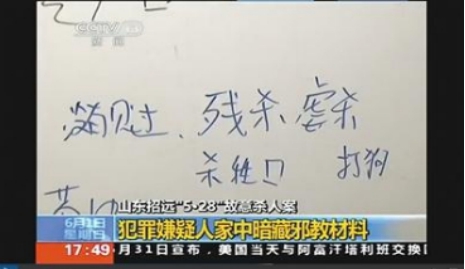 CCTV 新闻
没有见过、残杀 虐杀
杀牲口 打狗
山东招远"5·28"故意杀人案
6月1日
星期日
犯罪嫌疑人家中暗藏邪教材料
17:49 月31日宣布，美国当天与阿富汗塔利班交换